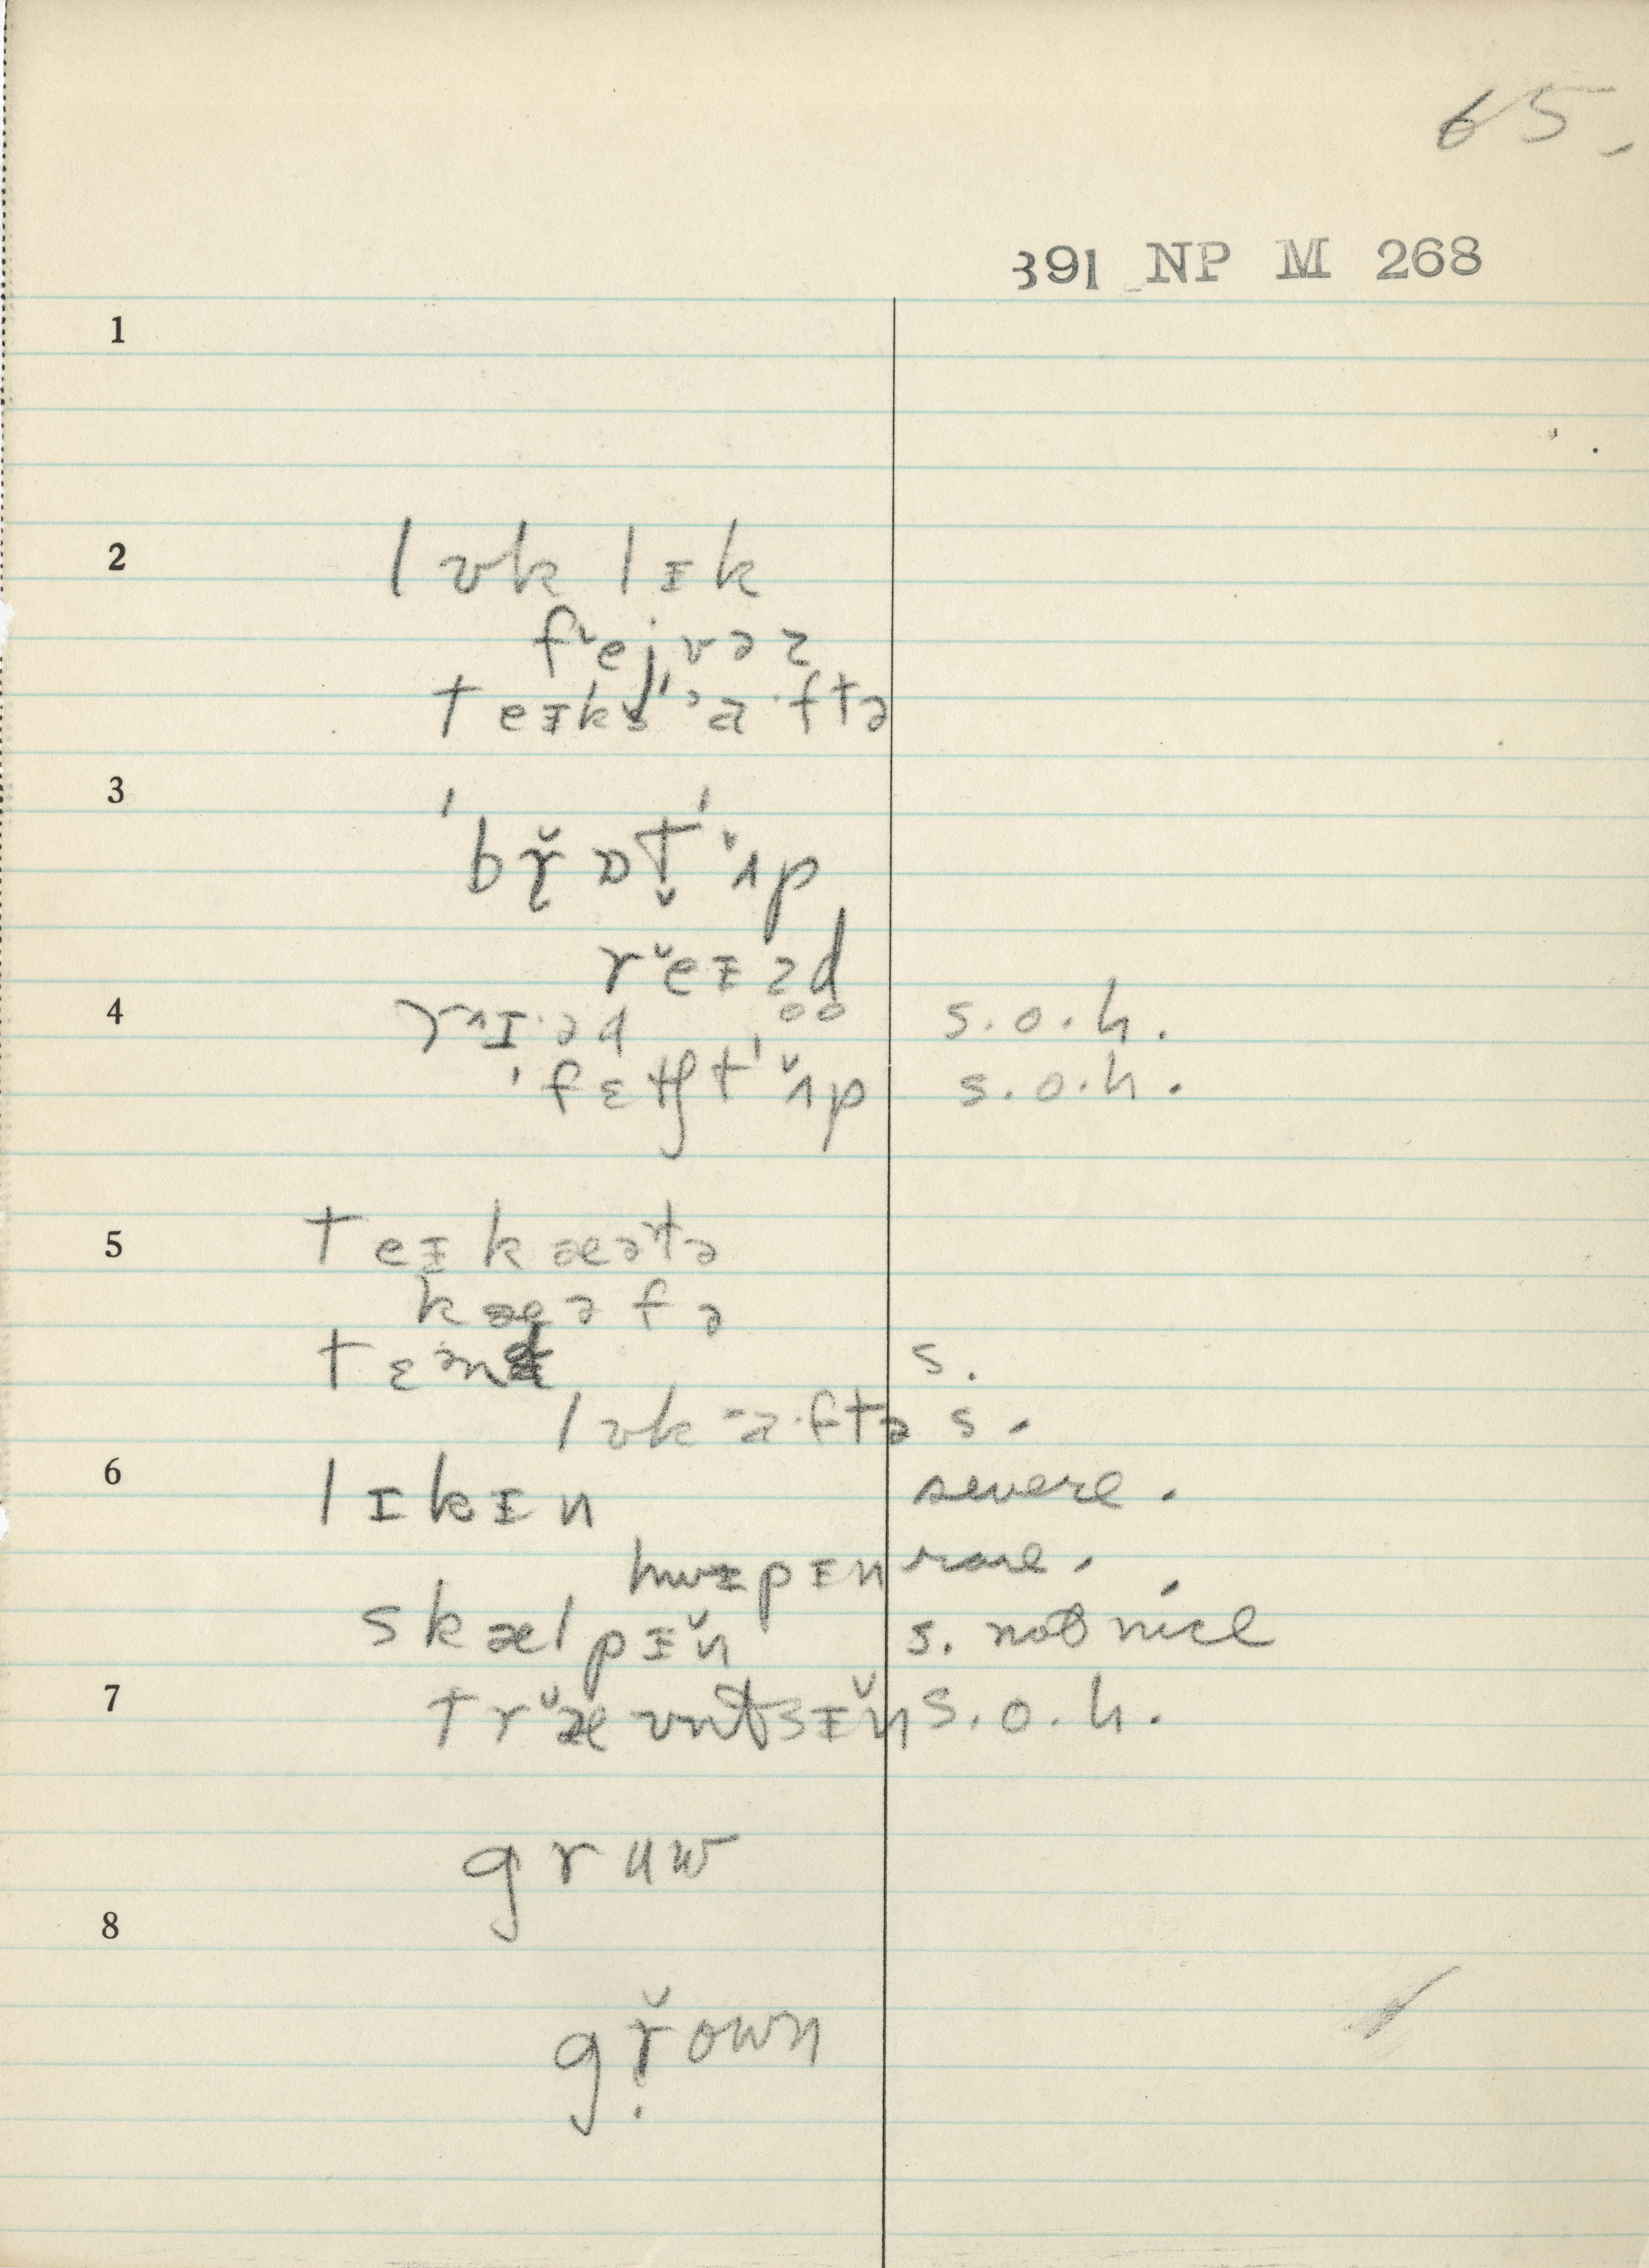 65.
391 NP M 268
1
2
lʊk lɪk
f˞ejvəz
teɪks ˈaˑftə
3
ˈbr̬ɒt̬ ˈʌp
r̆eɪzd̥
4
rɪˑəd s.o.h.
ˈfɛtʃt ˈʌp s.o.h.
5
teɪkæətə
kæəfə
tɛənd s.
lʊk aˑftə s.
6
lɪkɪn severe.
hwɪpɪn rare.
skælpɪn s. not nice
7
træʊntsɪn s.o.h.
gruw
8
gr̬own